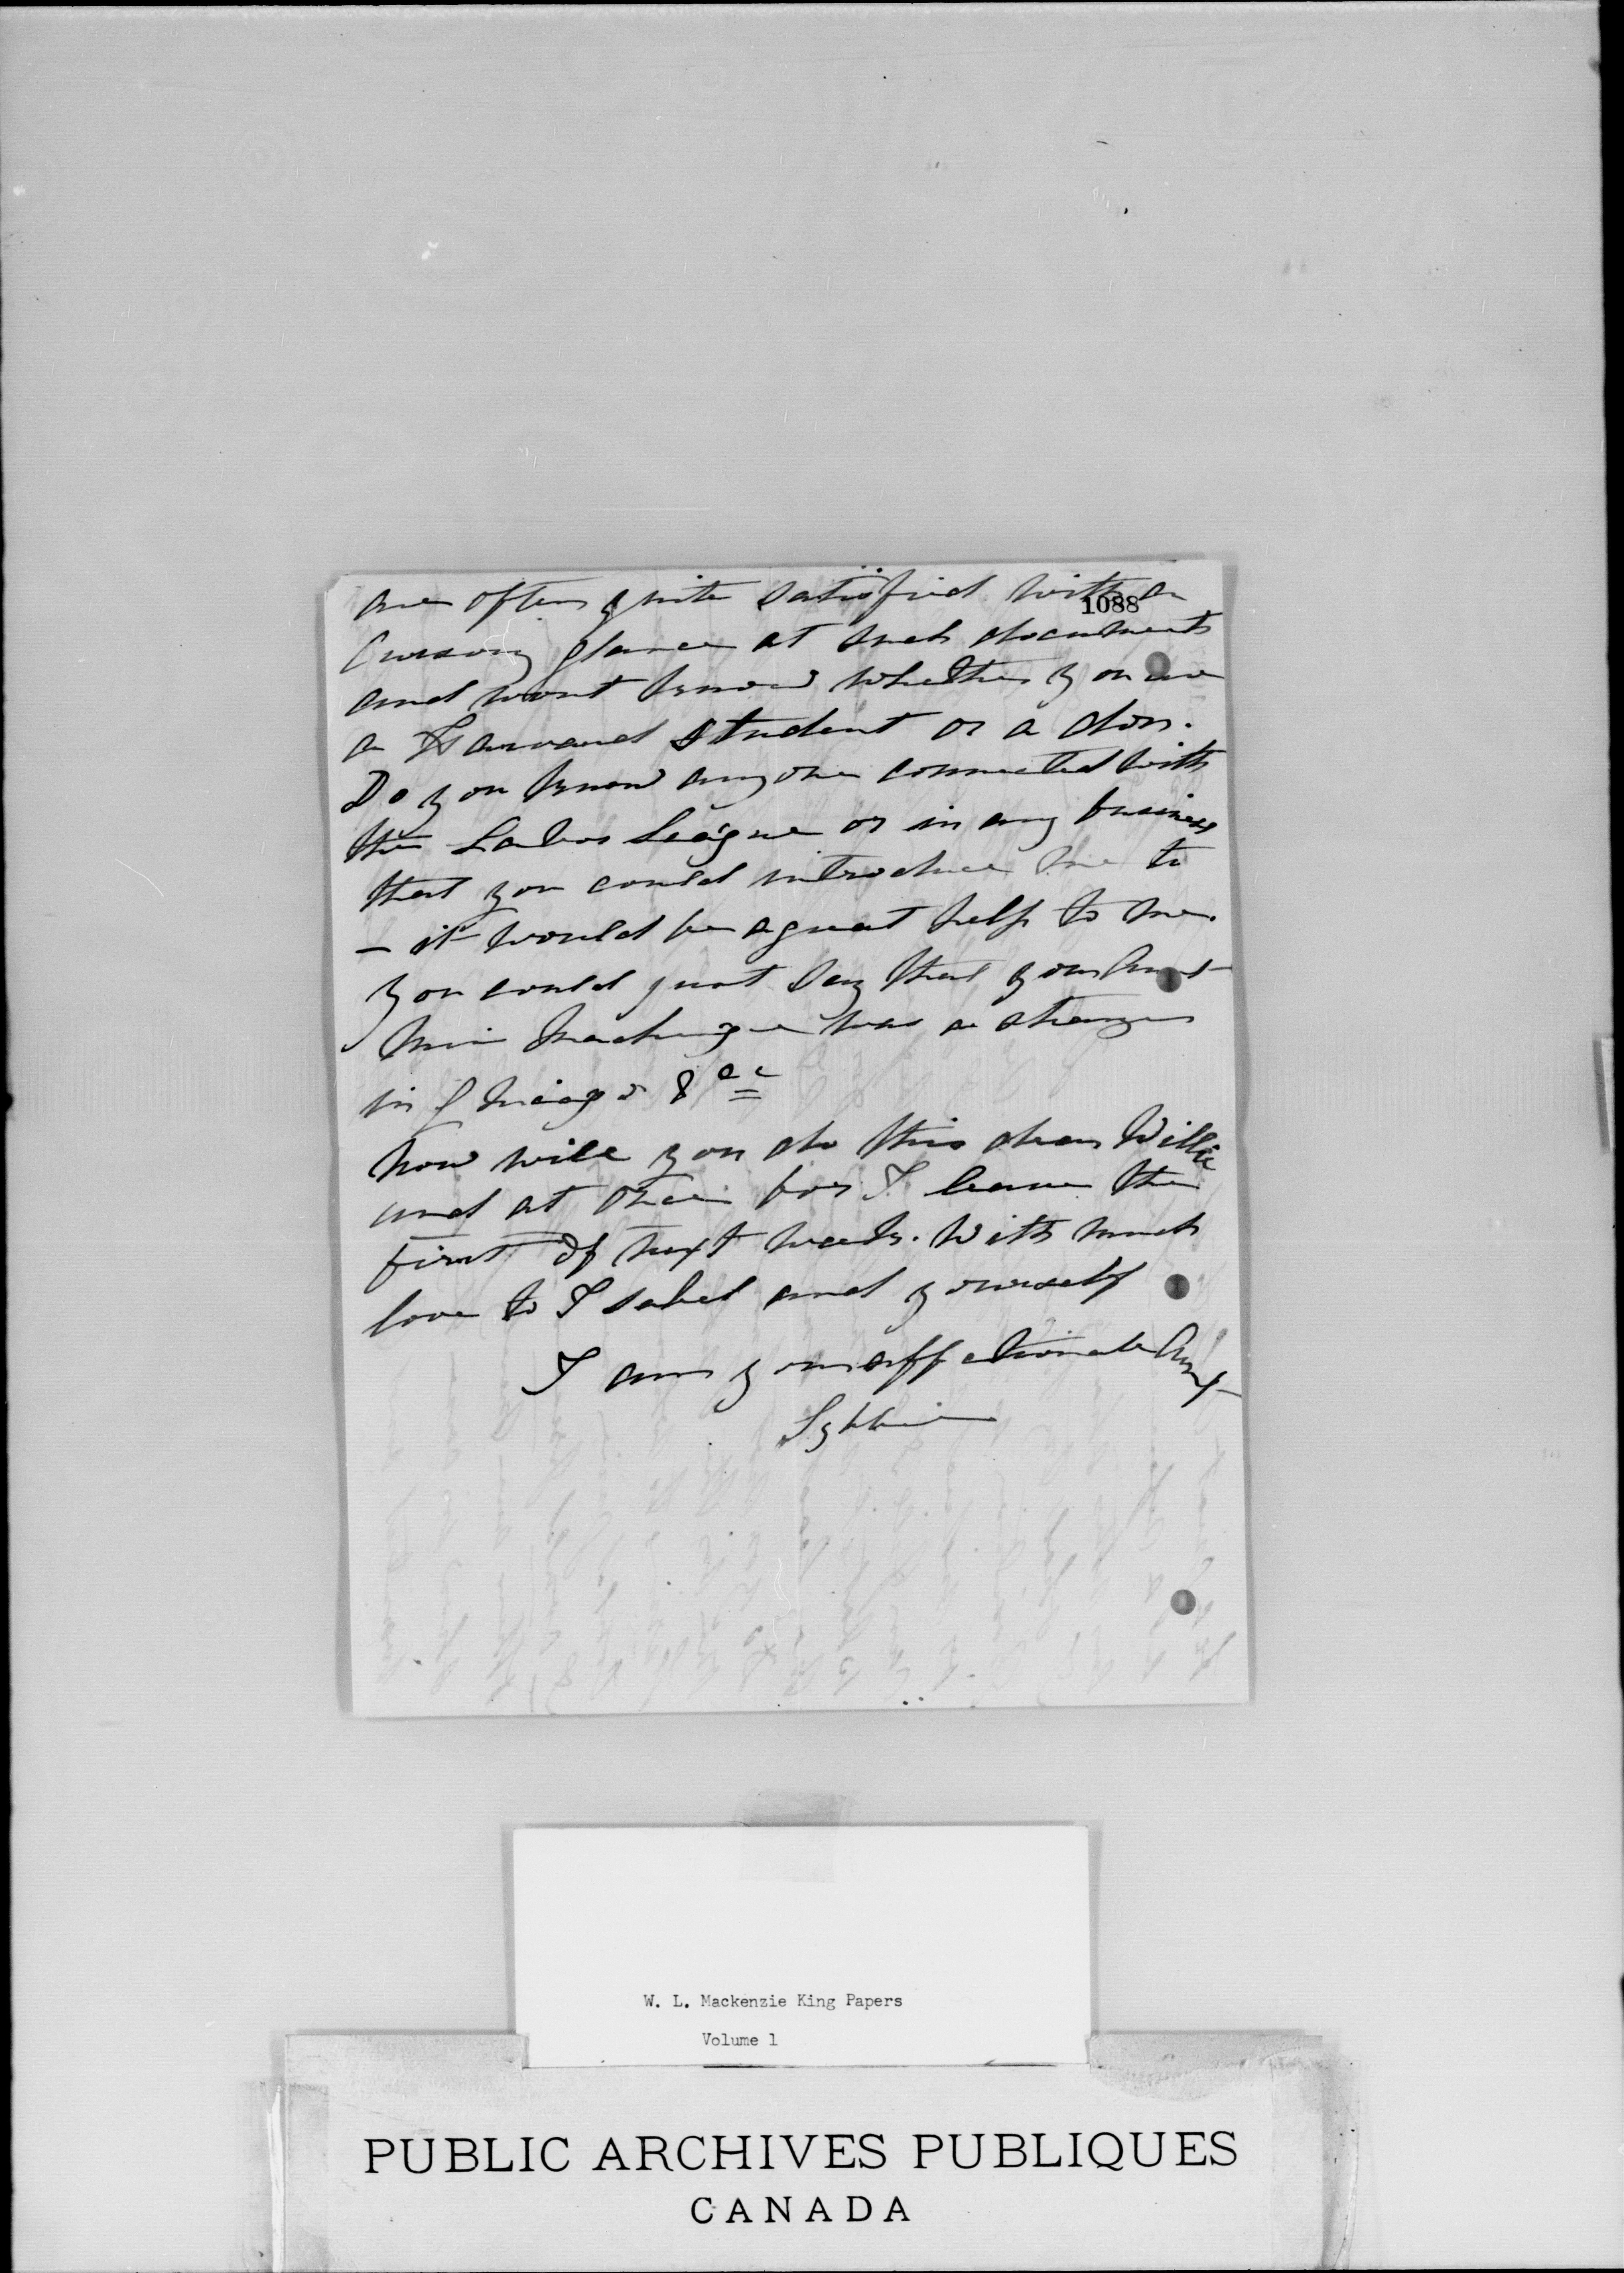 are often quite satisfied with a
1088
cursory glance at such documents
and wont know whether you are
a Harvard student or a don.
Do you know anyone connected with
the Labor League or in any business
that you could introduce me to
- it would be a great help to me.
You could just say that your Aunt
was a stranger
in Chicago &ac
Now will you do this dear Willie
and at once for I leave the
first of next week. With much
love to Isabel and yourself
I am your affectionate Aunt
W. L. Mackenzie King Papers
Volume 1
PUBLIC ARCHIVES PUBLIQUES
CANADA